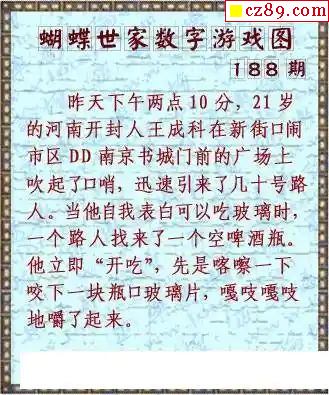 cz89.com
蝴蝶世家数字游戏图
188期
昨天下午两点10分，21岁
的河南开封人王成科在新街口闹
市区DD南京书城门前的广场上
吹起了口哨，迅速引来了几十号路
人。当他自我表白可以吃玻璃时，
一个路人找来了一个空啤酒瓶。
他立即“开吃”，先是喀嚓一下
咬下一块瓶口玻璃片，嘎吱嘎吱
地嚼了起来。